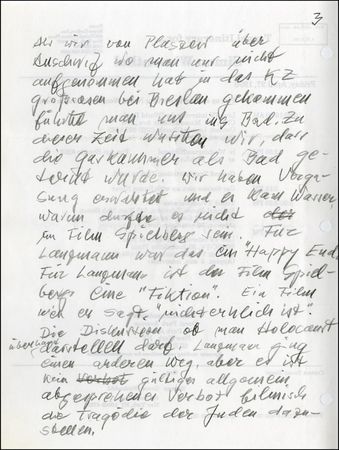 3
Als wir von Plaszow über
Auschwitz wo man uns nicht
aufgenommen hat in das KZ
grossrosen bei Breslau gekommen
führte man uns ins Bad. Zu
dieser Zeit wussten wir, dass
die gaskammer als Bad ge-
tarnt wurde. Wir haben Verga-
sung erwartet und es kam Wasser,
warum durfte es nicht
im Film Spielberg sein. Für
Lanzmann war das ein "Happy End".
Für Lanzmann ist der Film Spiel-
bergs eine "Fiktion". Ein Film
wie er sagt,
Die Diskussion ob man Holocaust
überhaupt darstellen darf. Lanzmann ging
einen anderen Weg, aber es ist
kein Verbot gültiges allgemein,
abgesprochenes Verbot filmisch
die Tragödie der Juden darzu-
stellen.